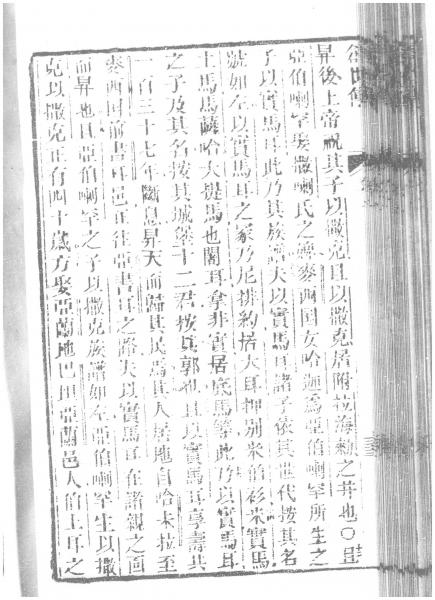 創世傳
昇後上帝祝其子以撒克且以撒克居附拉海勒之井也〇且
亞伯喇罕與撒喇氏之婢麥西國女哈迦為亞伯喇罕所生之
子以實馬耳此乃其族譜夫以實馬耳諸子依其世代按其名
號如左以實馬耳之冢乃尼排約搭大耳押別米伯衫米實馬
土馬馬薩哈大提馬也閣耳拿非實居底馬等此乃以實馬耳
之子及其名按其城堡十二君按其郭也且以實馬耳享壽共
一百三十七年斷息昇天而歸其民焉其人居自哈未拉至
麥西國前書耳邑正往亞書耳之路夫以實馬耳在諸親之面
而昇也且亞伯喇罕之子以撒克族譜如左亞伯喇罕生以撒
克以撒克正有四十歲方娶亞蘭地巴坦亞蘭邑人伯土耳之